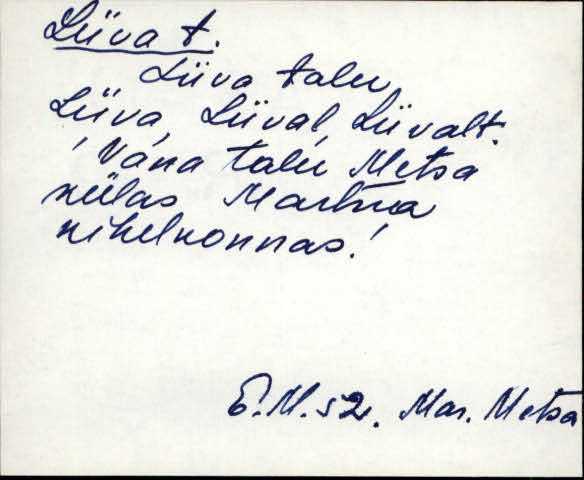 Liiva t.
Liiva talu,
Liiva, Liival, Liivalt.
'Vana talu Metsa
külas Martna
kihelkonnas.'
E.M. 52. Mar. Metsa